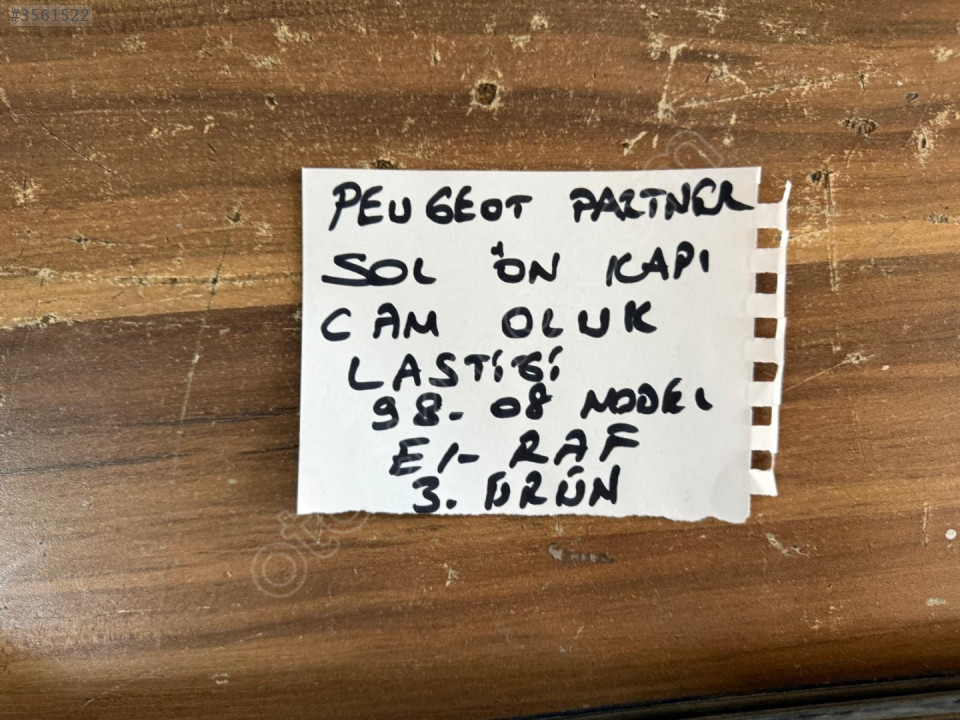 #3561522
PEUGEOT PARTNER
SOL ÖN KAPI
CAM OLUK
LASTİĞİ
98-08 MODEL
E1- RAF
3. ÜRÜN